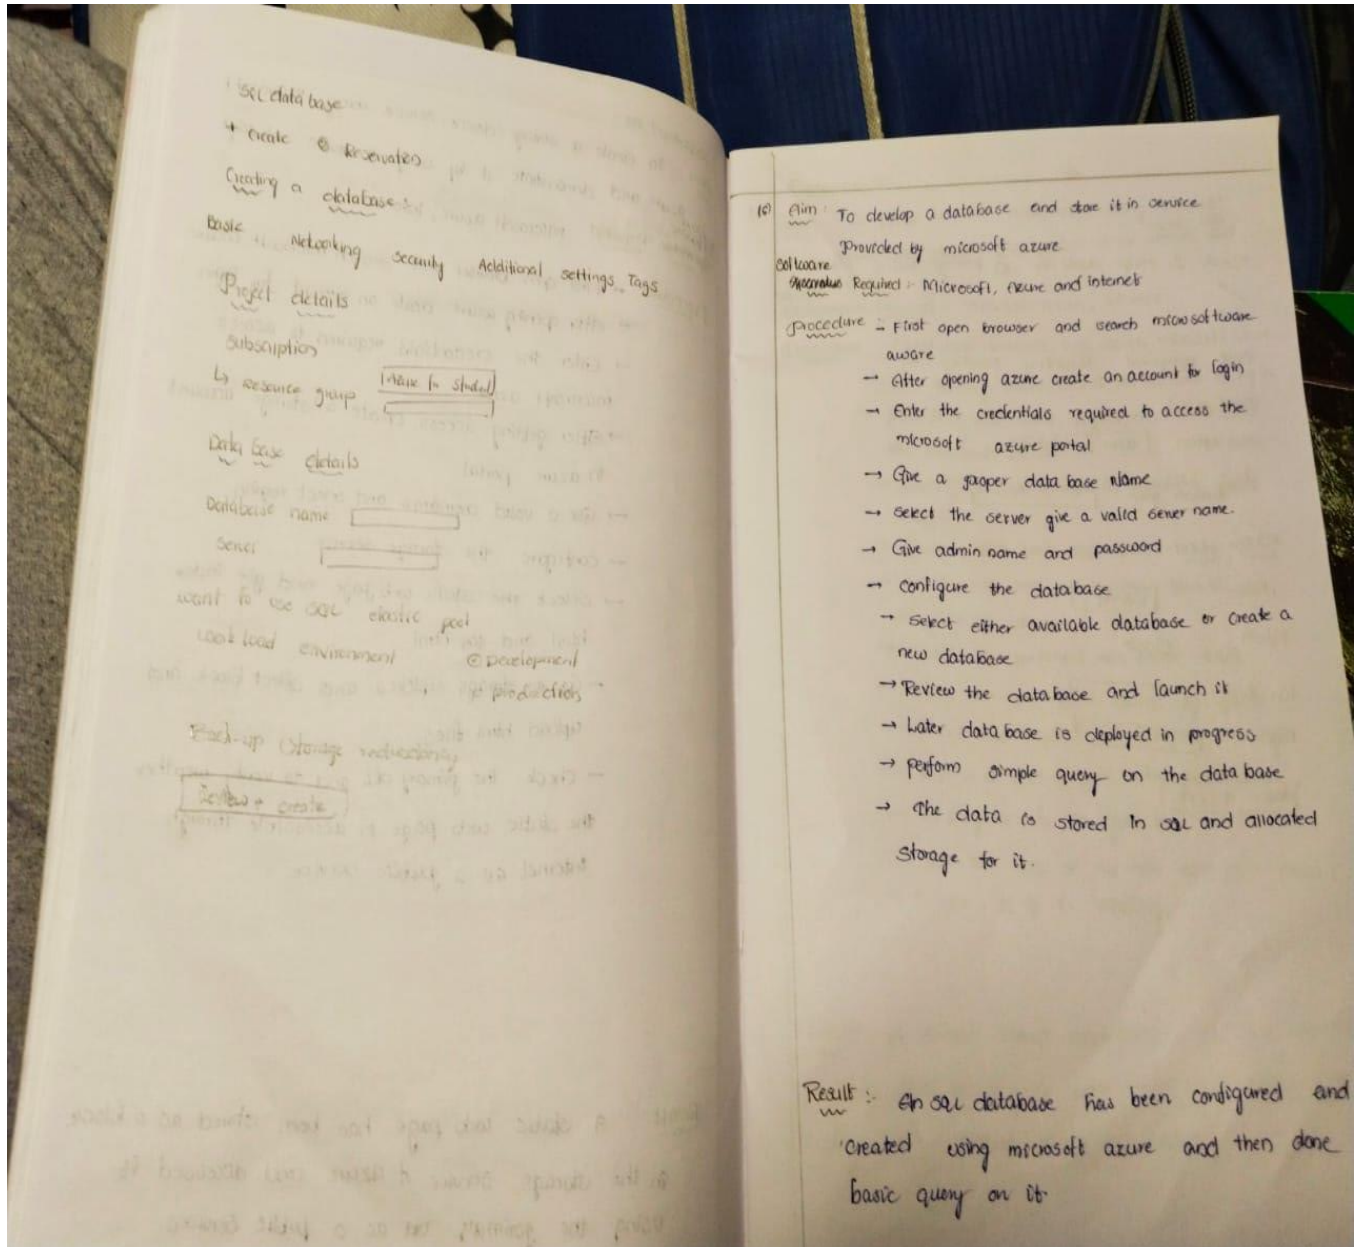 SQL data base
+ create ⊙ Reservation
Creating a database :
Basic Networking security Additional settings Tags
Project details
Subscription
↳ resource group Azure for student
Data base details
Database name
Server
want to use SQL elastic pool
work load environment ⊙ Development
production
Back-up storage redundancy
Review + create
16) Aim : To develop a database and store it in service
Provided by microsoft azure
software
Required :- Microsoft, Azure and internet
Procedure :- First open browser and search microsoftware
aware
→ After opening azure create an account for login
→ Enter the credentials required to access the
microsoft azure portal
→ Give a proper data base Name
→ select the server give a valid server name.
→ Give admin name and password
→ configure the database
→ Select either available database or create a
new database
→ Review the database and launch it
→ Later data base is deployed in progress
→ perform simple query on the data base
→ The data is stored in SQL and allocated
storage for it.
Result :- An SQL database has been configured and
created using microsoft azure and then done
basic query on it.